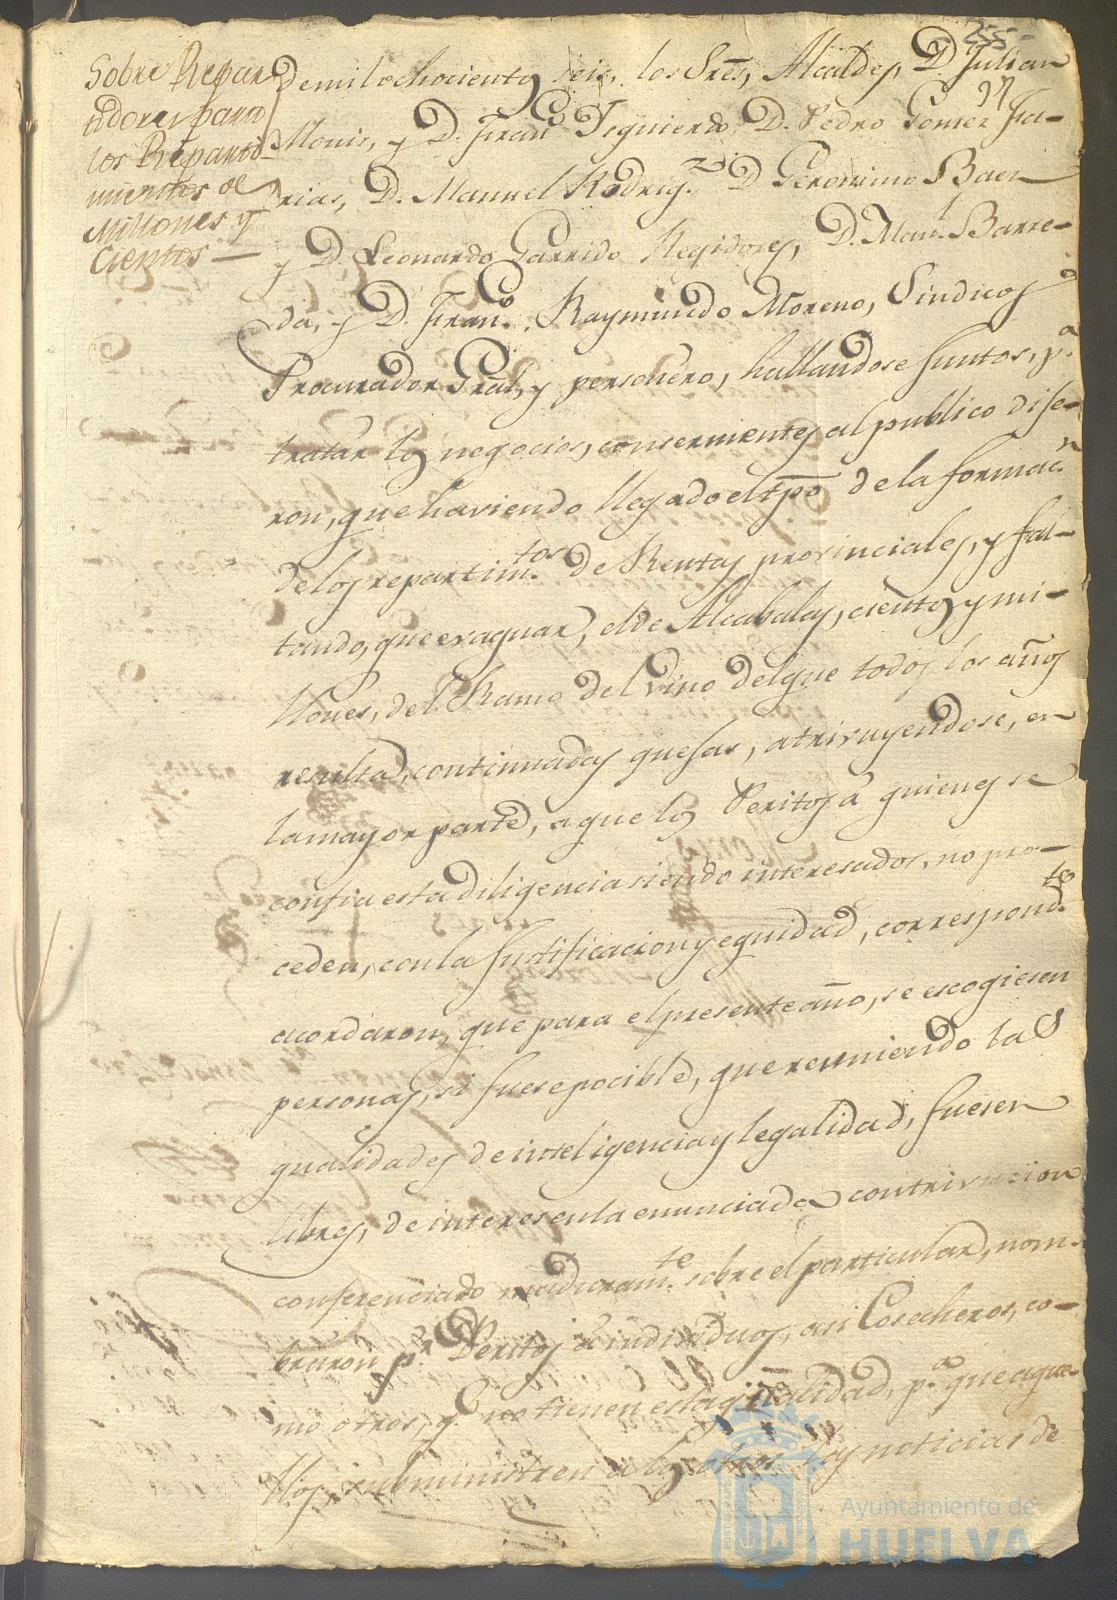 255
Sobre Repar
tidores para
los Reparti-
mientos de
Millones y
Cientos
De mil ochocientos seis, los Sres, Alcaldes, D. Julian
Monis, y D. Franco Izquierdo, D. Pedro Gomez Fa-
rias, D. Manuel Rodrigz D Geronimo Baez
y D. Leonardo Garrido Regidores, D. Manl Barre-
da, y D. Franco. Raymundo Moreno, Sindicos
Procurador Gral, y personero, hallandose juntos, pa
tratar los negocios, consermientes al publico dije-
ron, que haviendo llegado el tpo de la formacn
de los repartimtos de Rentas provinciales, y fal-
tando, que evaquar, el de Alcabalas, cientos y mi-
llones, del Ramo del Vino del que todos los años
resulta, continuadas quejas, atrivuyendose, en
la mayor parte, a que los Peritos á quienes se
confia esta diligencia siendo interesados, no pro-
ceden, con la justificacion y equidad, correspondte
acordaron, que para el presente año, se escogiesen
personas, si fuese pocible, que reuniendo las
qualidades de inteligencia y legalidad, fuesen
libres, de interes en la enunciada contrivucion
conferenciado maduramte sobre el particular, nom-
braron pr Peritos á individuos, asi Cosecheros, co-
mo otros, qe no tienen esta qualidad, pa que aque
llos, subministren a los otros las noticias de
Ayuntamiento de
HUELVA